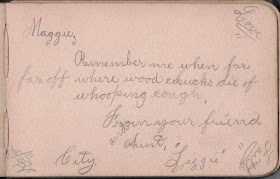 Maggie.
"Remember me when far
far off where wood chucks die of
whooping cough.
From your friend
Aunt,
City "Lizzie"